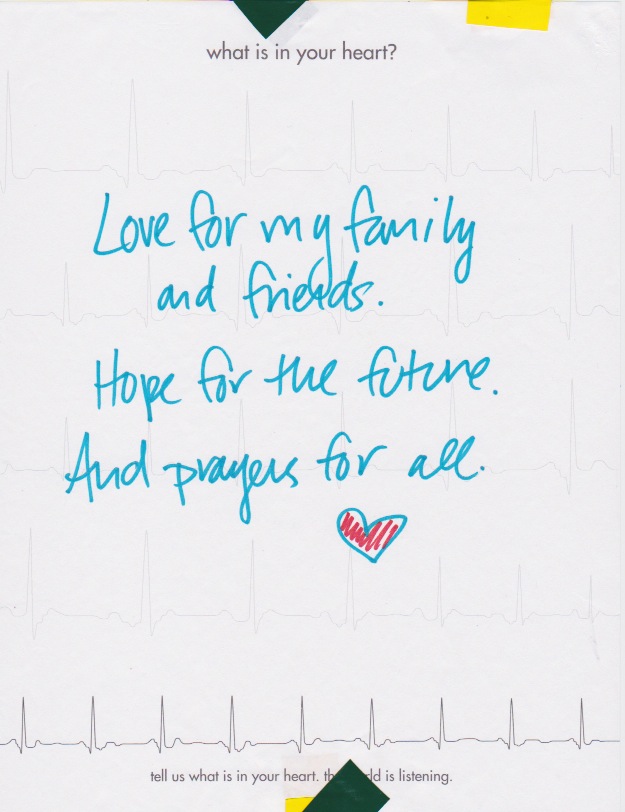 what is in your heart?
Love for my family
and friends.
Hope for the future.
And prayers for all.
tell us what is in your heart. th ld is listening.